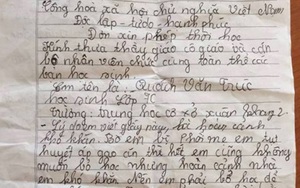 Cộng hoà xã hội chủ nghĩa Việt Nam
Độc lập - tự do - hạnh phúc
Đơn xin phép thôi học
Kính thưa thầy giáo cô giáo và cán
bộ nhân viên chức cùng toàn thể các
bạn học sinh
Em tên là: Quách Văn Trúc
học sinh lớp 7C
trường: trung học cơ sở xuân
Lý do em viết giấy này, là hoàn cảnh
khó khăn. Bố em bị mẹ em
huyết áp cao thì hết em cũng không
muốn bỏ học nhưng hoàn cảnh nhà
em khó khăn nên em phải bỏ học để